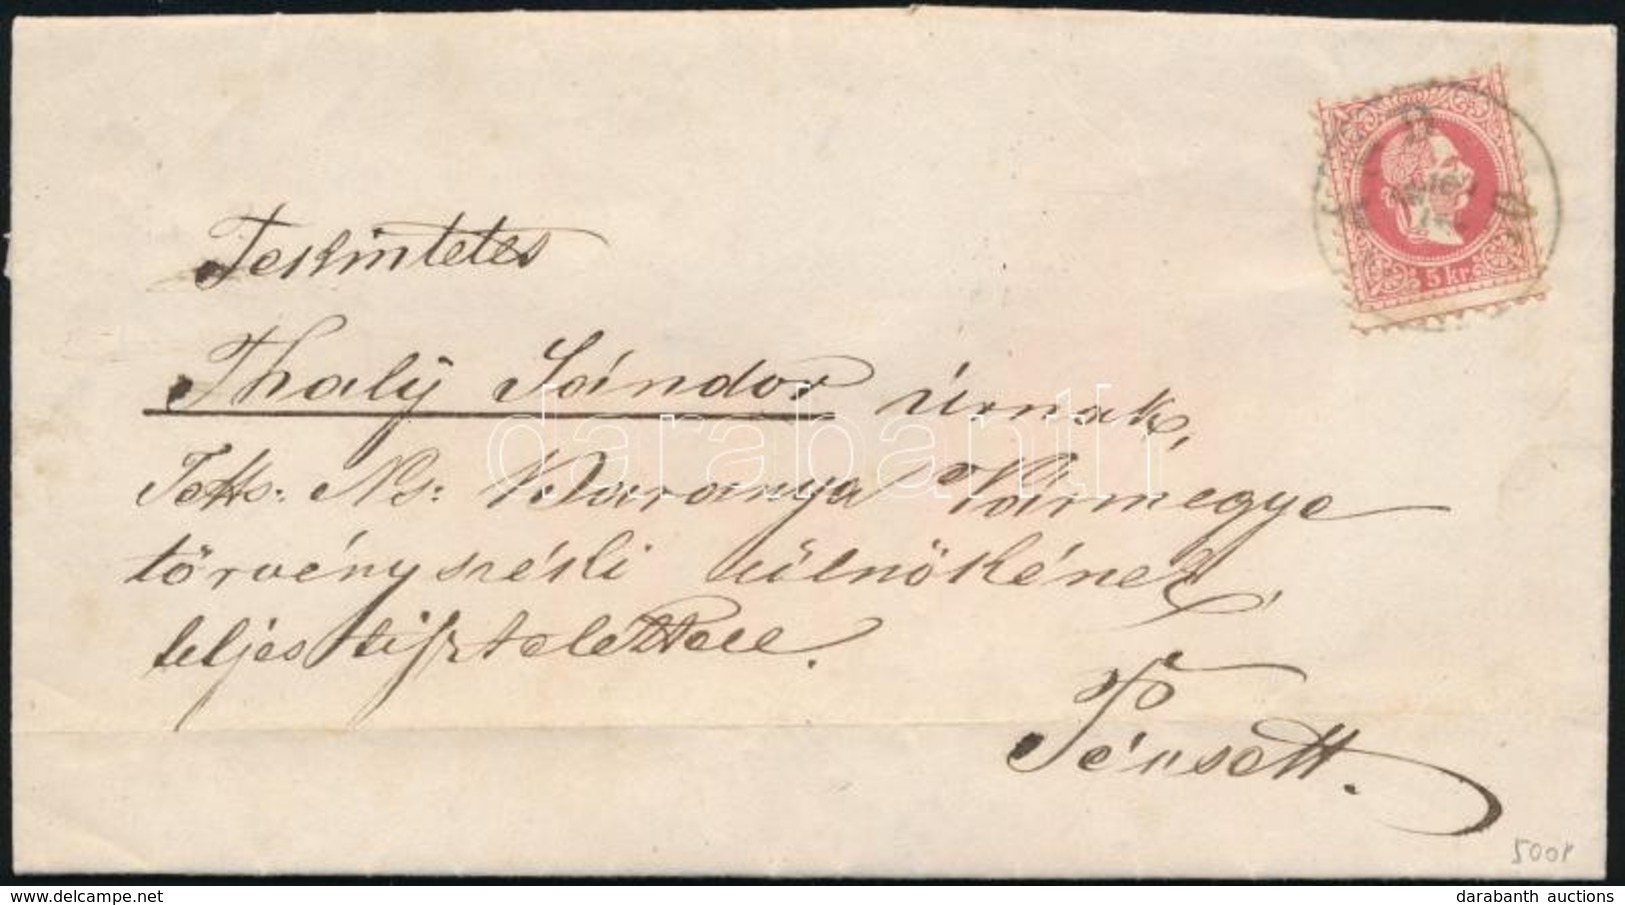 Tekintetes
Thalÿ Sándor úrnak,
Tetts: Ns: Baranya Vármegye
törvényszéki ülnökének,
teljes tisztelettel.
Pécsett.
5 kr
darabanth
500P
darabanth auctions